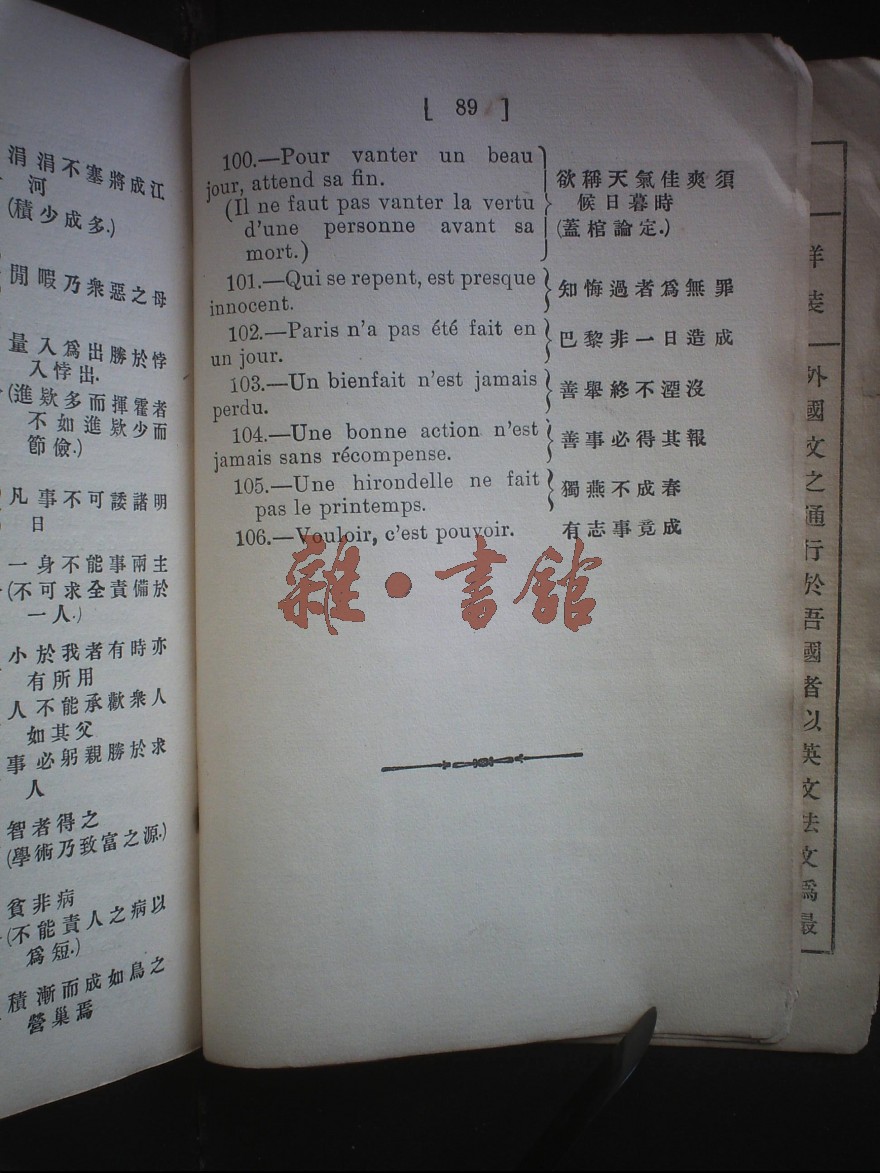 涓涓不塞將成江
河
(積少成多.)
閒暇乃衆惡之母
量入爲出勝於悖
入悖出.
(進欵多而揮霍者
不如進欵少而
節儉.)
凡事不可諉諸明
日
一身不能事兩主
(不可求全責備於
一人.)
小於我者有時亦
有所用
人不能承歡衆人
如其父
事必躬親勝於求
人
智者得之
(學術乃致富之源.)
貧非病
(不能責人之病以
爲短.)
積漸而成如鳥之
營巢焉
[ 89 ]
100.—Pour vanter un beau
jour, attend sa fin.
(Il ne faut pas vanter la vertu
d'une personne avant sa
mort.)
欲稱天氣佳爽須
候日暮時
(蓋棺論定.)
101.—Qui se repent, est presque
innocent.
知悔過者爲無罪
102.—Paris n'a pas été fait en
un jour.
巴黎非一日造成
103.—Un bienfait n'est jamais
perdu.
善舉終不湮沒
104.—Une bonne action n'est
jamais sans récompense.
善事必得其報
105.—Une hirondelle ne fait
pas le printemps.
獨燕不成春
106.—Vouloir, c'est pouvoir.
有志事竟成
雜·書館
外國文之通行於吾國者以英文法文爲最